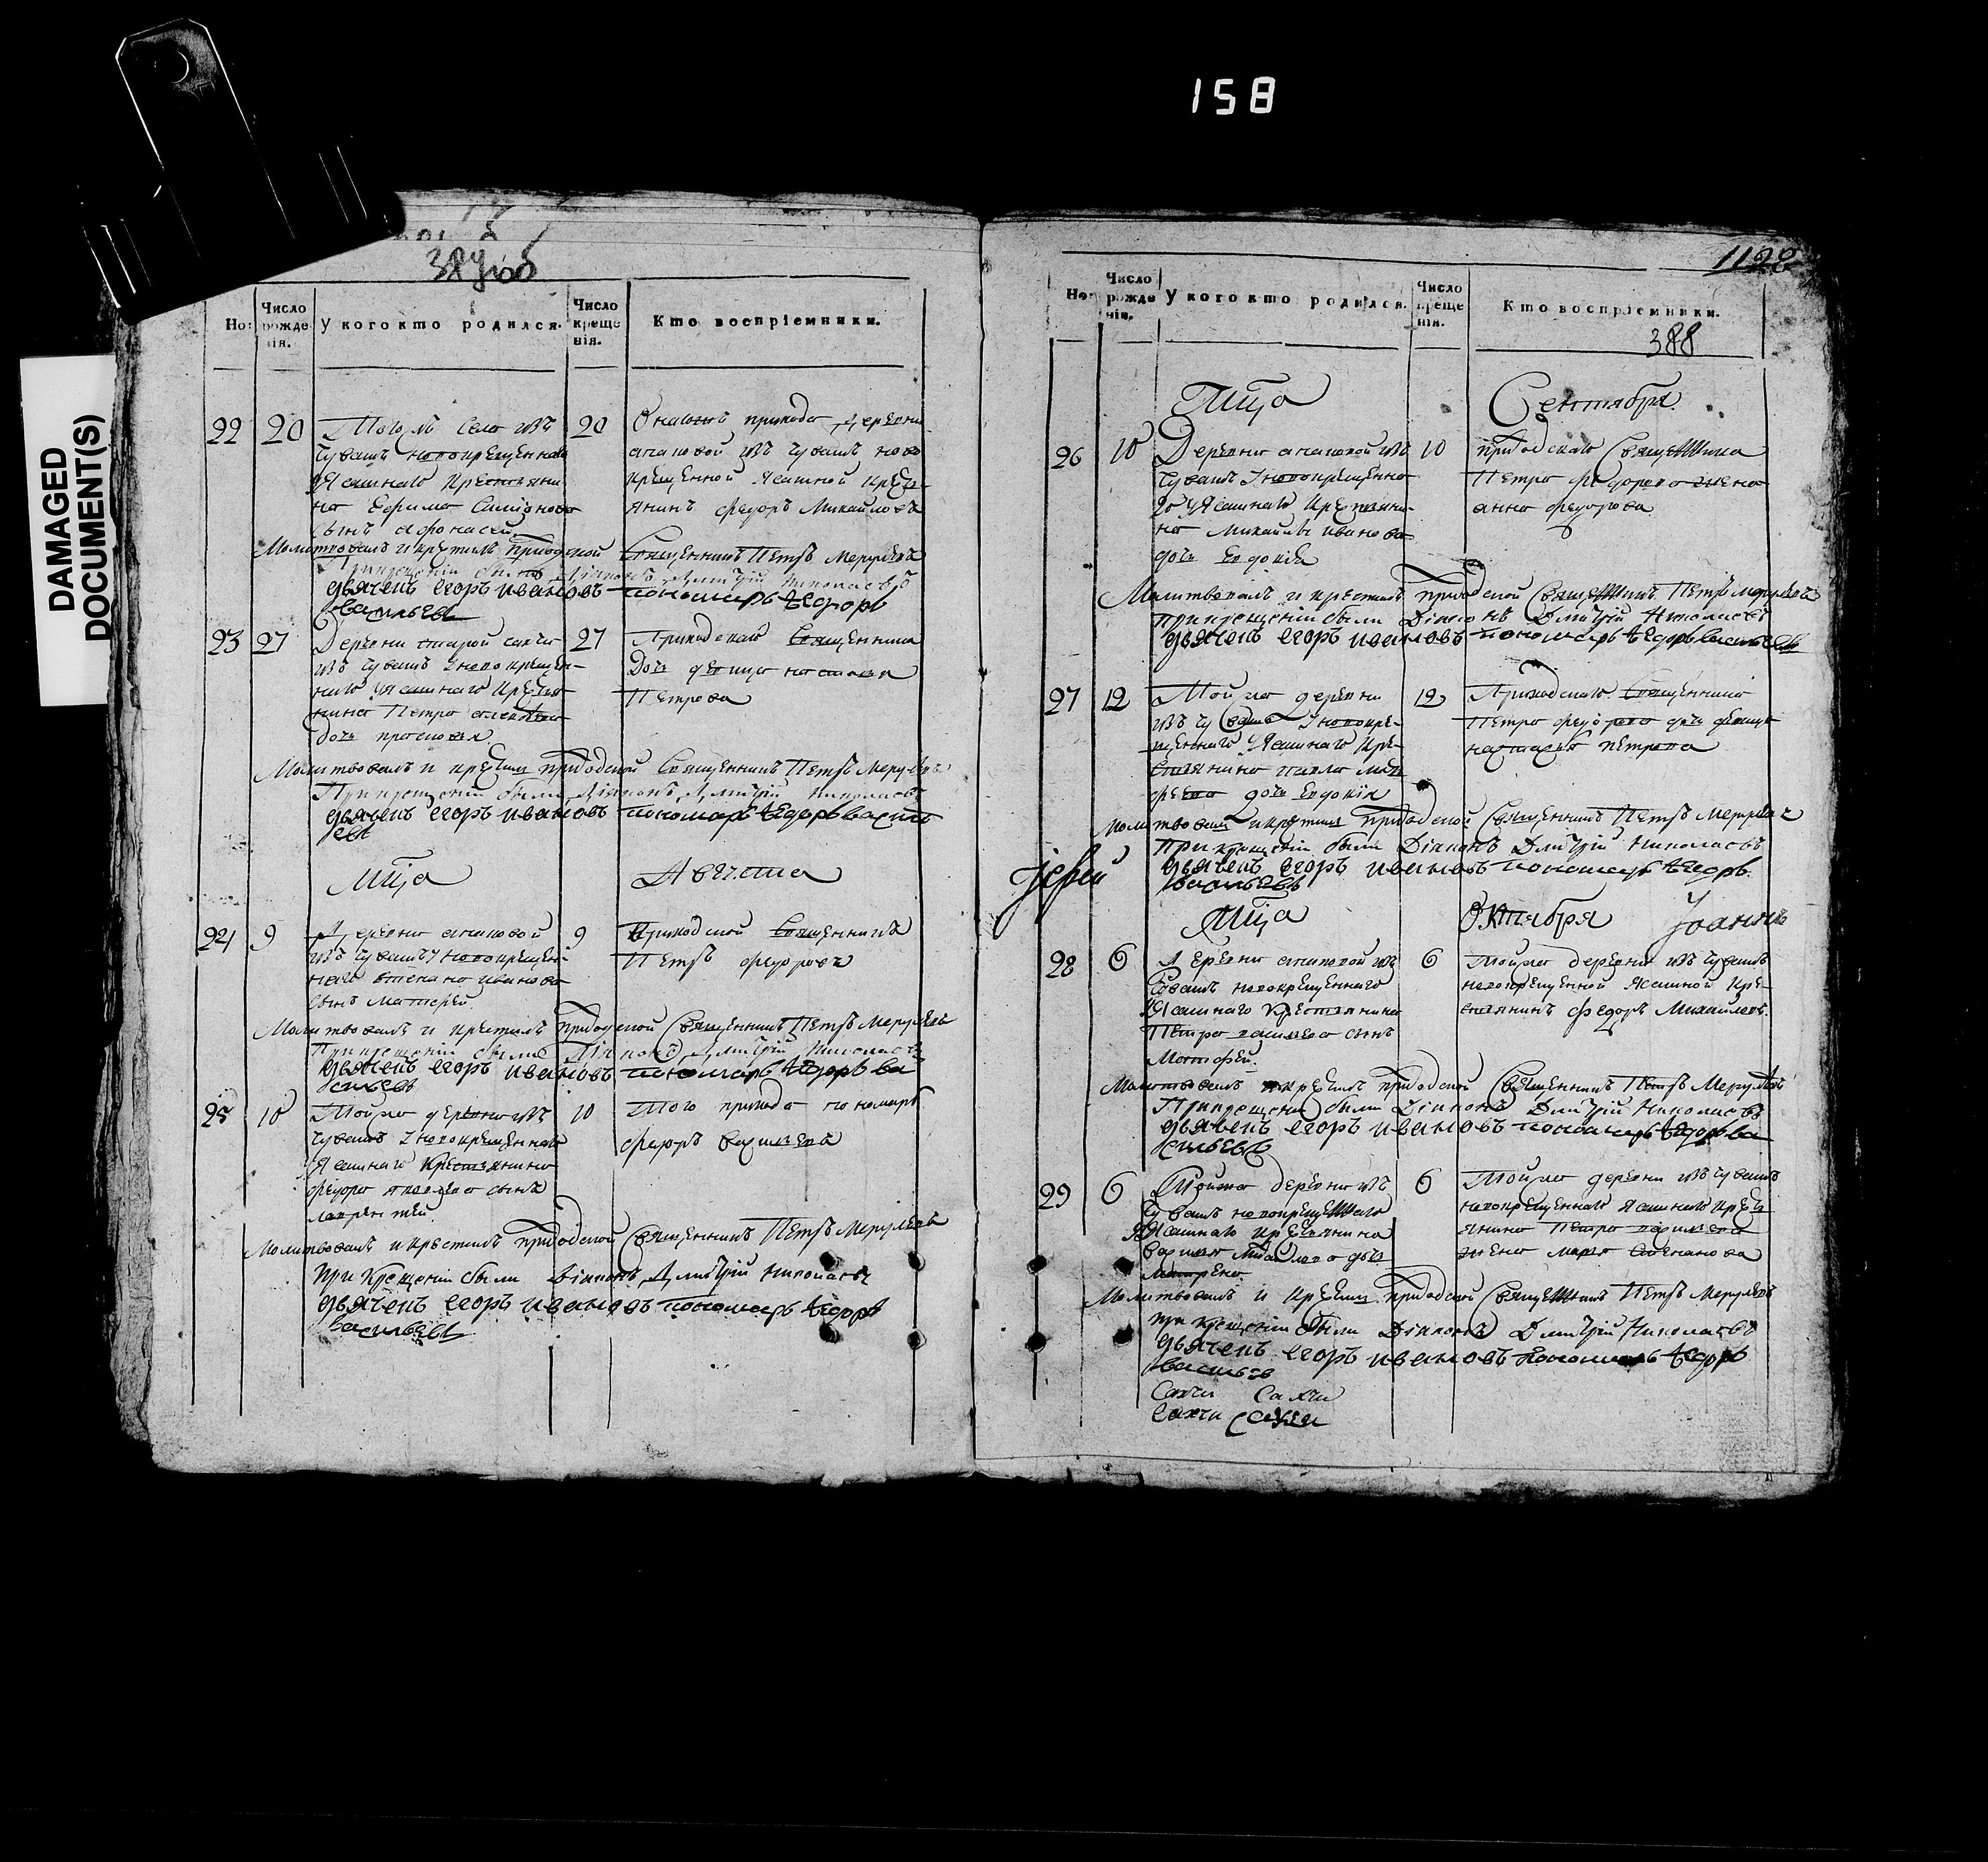 158
DAMAGED
DOCUMENT(S)
Но:
Число
рожде
нія.
У кого кто родился.
Число
креще
нія.
Кто воспріемники.
22 20 Тогожъ села изъ 20
чувашъ новокрещеннаго
Ясашнаго крестьяни
на Ефима Симіонова
сынъ Афонасей
Оналогъ прихода деревни
изъ чувашъ ново
крещенной Ясашной крест
янинъ Федоръ Михайловъ
Молитвовалъ и крестилъ приходской Священникъ Петръ
При крещеніи были Діаконъ Димитрій Николаевъ
дьячекъ егоръ ивановъ пономарь Ѳедоръ
васильевъ
23 27 Деревни старой сахчи 27
изъ чувашъ Уновокрещен-
наго Ясашнаго крестья
нина Петра
дочь
Приходскаго Священника
дочь девица настасья
Петрова
Молитвовалъ и крестилъ приходской Священникъ Петръ
При крещеніи были Діаконъ Димитрій Николаевъ
дьячекъ егоръ ивановъ пономарь Ѳедоръ василь
евъ
Мца Августа
24 9 Деревни 9
изъ чувашъ Уновокрещен-
наго степана иванова
сынъ матфей
Приходской Священникъ
Петръ Федоровъ
Молитвовалъ и крестилъ приходской Священникъ Петръ
При крещеніи были Діаконъ Димитрій Николаевъ
дьячекъ егоръ ивановъ пономарь Ѳедоръ ва
сильевъ
25 10 Тойжа деревни изъ 10
чувашъ Уновокрещеннаго
Ясашнаго крестьянина
Федора яковлева сынъ
лаврентей.
Того прихода пономарь
Федоръ Васильевъ
Молитвовалъ и крестилъ приходской Священникъ Петръ
При крещеніи были Діаконъ Димитрій Николаевъ
дьячекъ егоръ ивановъ пономарь Ѳедоръ
васильевъ
1128
Но:
Число
рожде
нія.
У кого кто родился.
Число
креще
нія.
Кто воспріемники.
388
Мца Сентября
26 10 Деревни изъ 10
чувашъ Уновокрещенна
го Ясашнаго крестьяни-
на Михайлы иванова
дочь Евдокія
приходскаго Священника
Петра Федорова жена
анна Федорова
Молитвовалъ и крестилъ приходской Священникъ Петръ
При крещеніи были Діаконъ Димитрій Николаевъ
дьячекъ егоръ ивановъ пономарь Ѳедоръ васильевъ
27 12 Тойжа деревни 12
изъ чувашъ Уновокре-
щеннаго Ясашнаго кре-
стьянина павла мат
феева дочь Евдокія
Приходскаго Священника
Петра Федорова дочь девица
настасья петрова
Молитвовалъ и крестилъ приходской Священникъ Петръ
При крещеніи были Діаконъ Димитрій Николаевъ
Іерей
дьячекъ егоръ ивановъ пономарь Ѳедоръ
васильевъ
Мца Октября Іоаннъ
28 6 Деревни изъ 6
чувашъ новокрещеннаго
Ясашнаго крестьянина
Петра васильева сынъ
Матфей.
Тойжа деревни изъ чувашъ
новокрещенной Ясашной кре-
стьянинъ Федоръ Михайловъ.
Молитвовалъ и крестилъ приходской Священникъ Петръ
При крещеніи были Діаконъ Димитрій Николаевъ
дьячекъ егоръ ивановъ пономарь Ѳедоръ ва
сильевъ
29 6 Тойжа деревни изъ 6
чувашъ новокрещеннаго
Ясашнаго крестьянина
дочь
Матрена.
Тойжа деревни изъ чувашъ
новокрещеннаго Ясашнаго крест
янина Петра васильева
жена марья Степанова
Молитвовалъ и крестилъ приходской Священникъ Петръ
при крещеніи были Діаконъ Димитрій Николаевъ
дьячекъ егоръ ивановъ пономарь Ѳедоръ
васильевъ
Сахчи Сахчи
Сахчи Сахчи